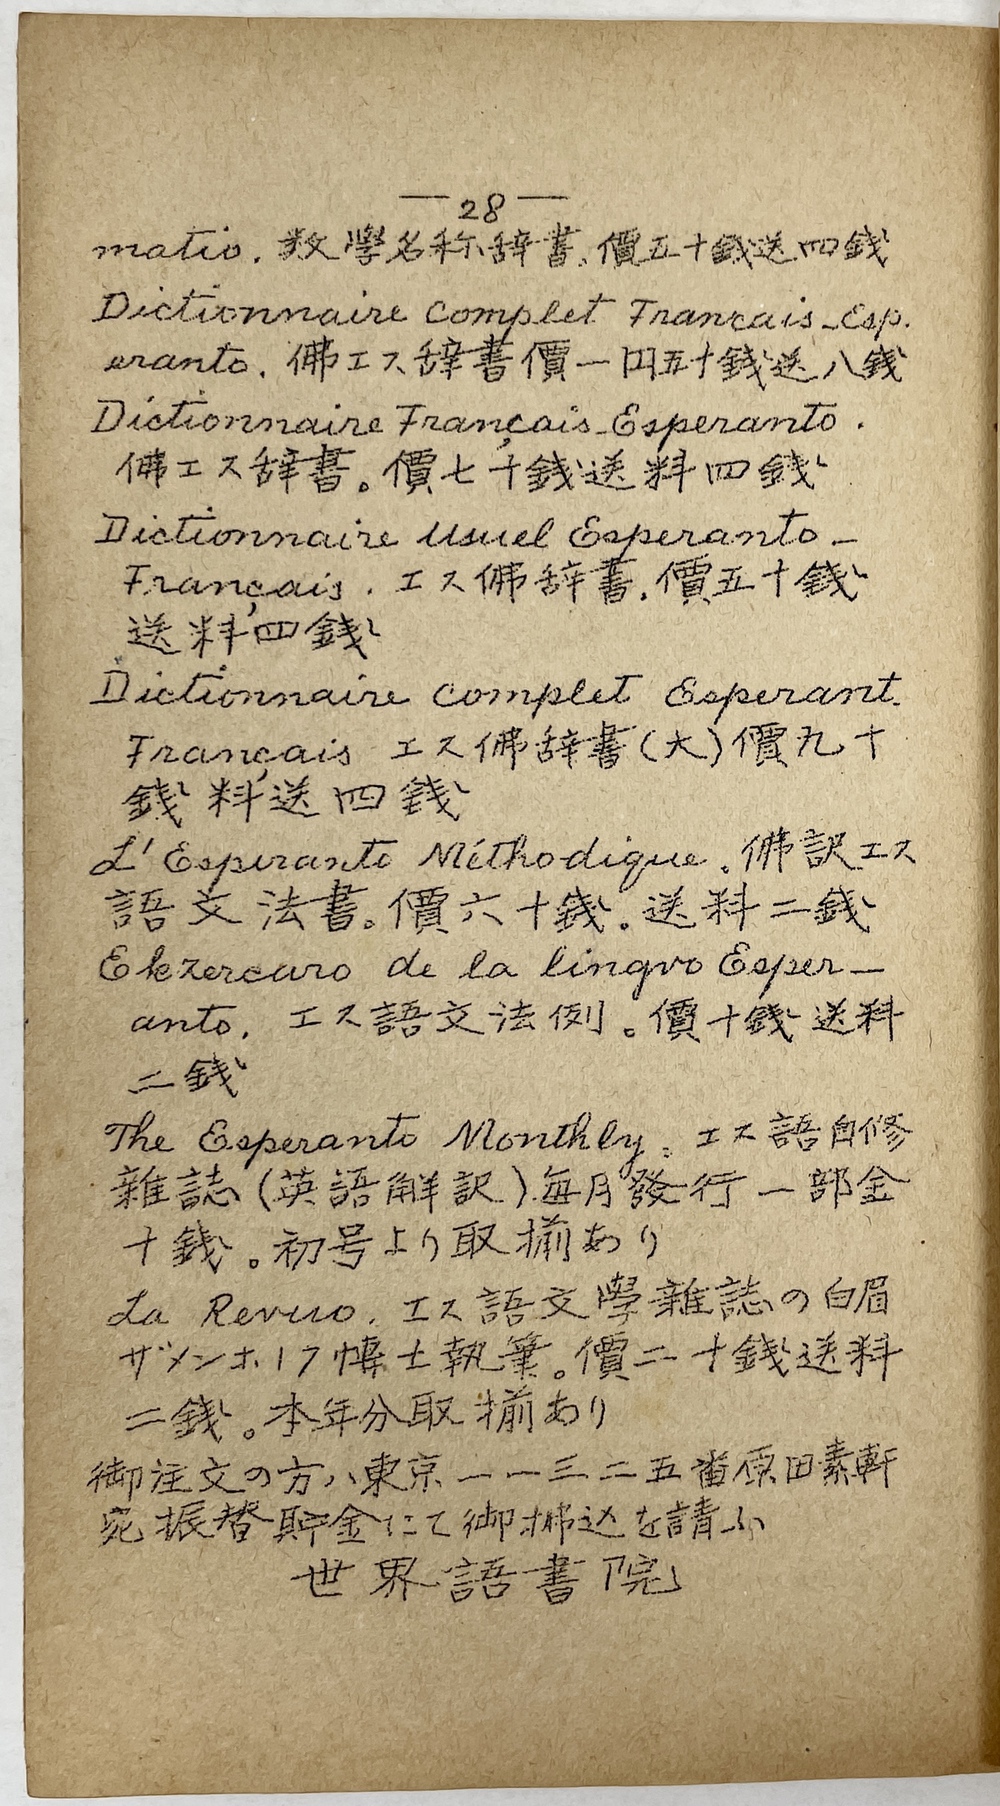 — 28 —
matio. 数學名称辞書. 價五十銭送四銭
Dictionnaire Complet Francais-Esp.
eranto. 佛エス辞書價一円五十銭送八銭
Dictionnaire Français-Esperanto.
佛エス辞書。價七十銭送料四銭
Dictionnaire Usuel Esperanto-
Français. エス佛辞書. 價五十銭
送料四銭
Dictionnaire Complet Esperant.
Français エス佛辞書(大)價九十
銭料送四銭
L'Esperanto Méthodique. 佛訳エス
語文法書。價六十銭。送料二銭
Ekzercaro de la lingvo Esper-
anto. エス語文法例。價十銭送料
二銭
The Esperanto Monthly. エス語自修
雜誌(英語解訳)毎月發行一部金
十銭。初号より取揃あり
La Revuo. エス語文學雜誌の白眉
ザメンホ17博士執筆。價二十銭送料
二銭。本年分取揃あり
御注文の方ハ東京一一三二五番原田素軒
宛振替貯金にて御拂込を請ふ
世界語書院